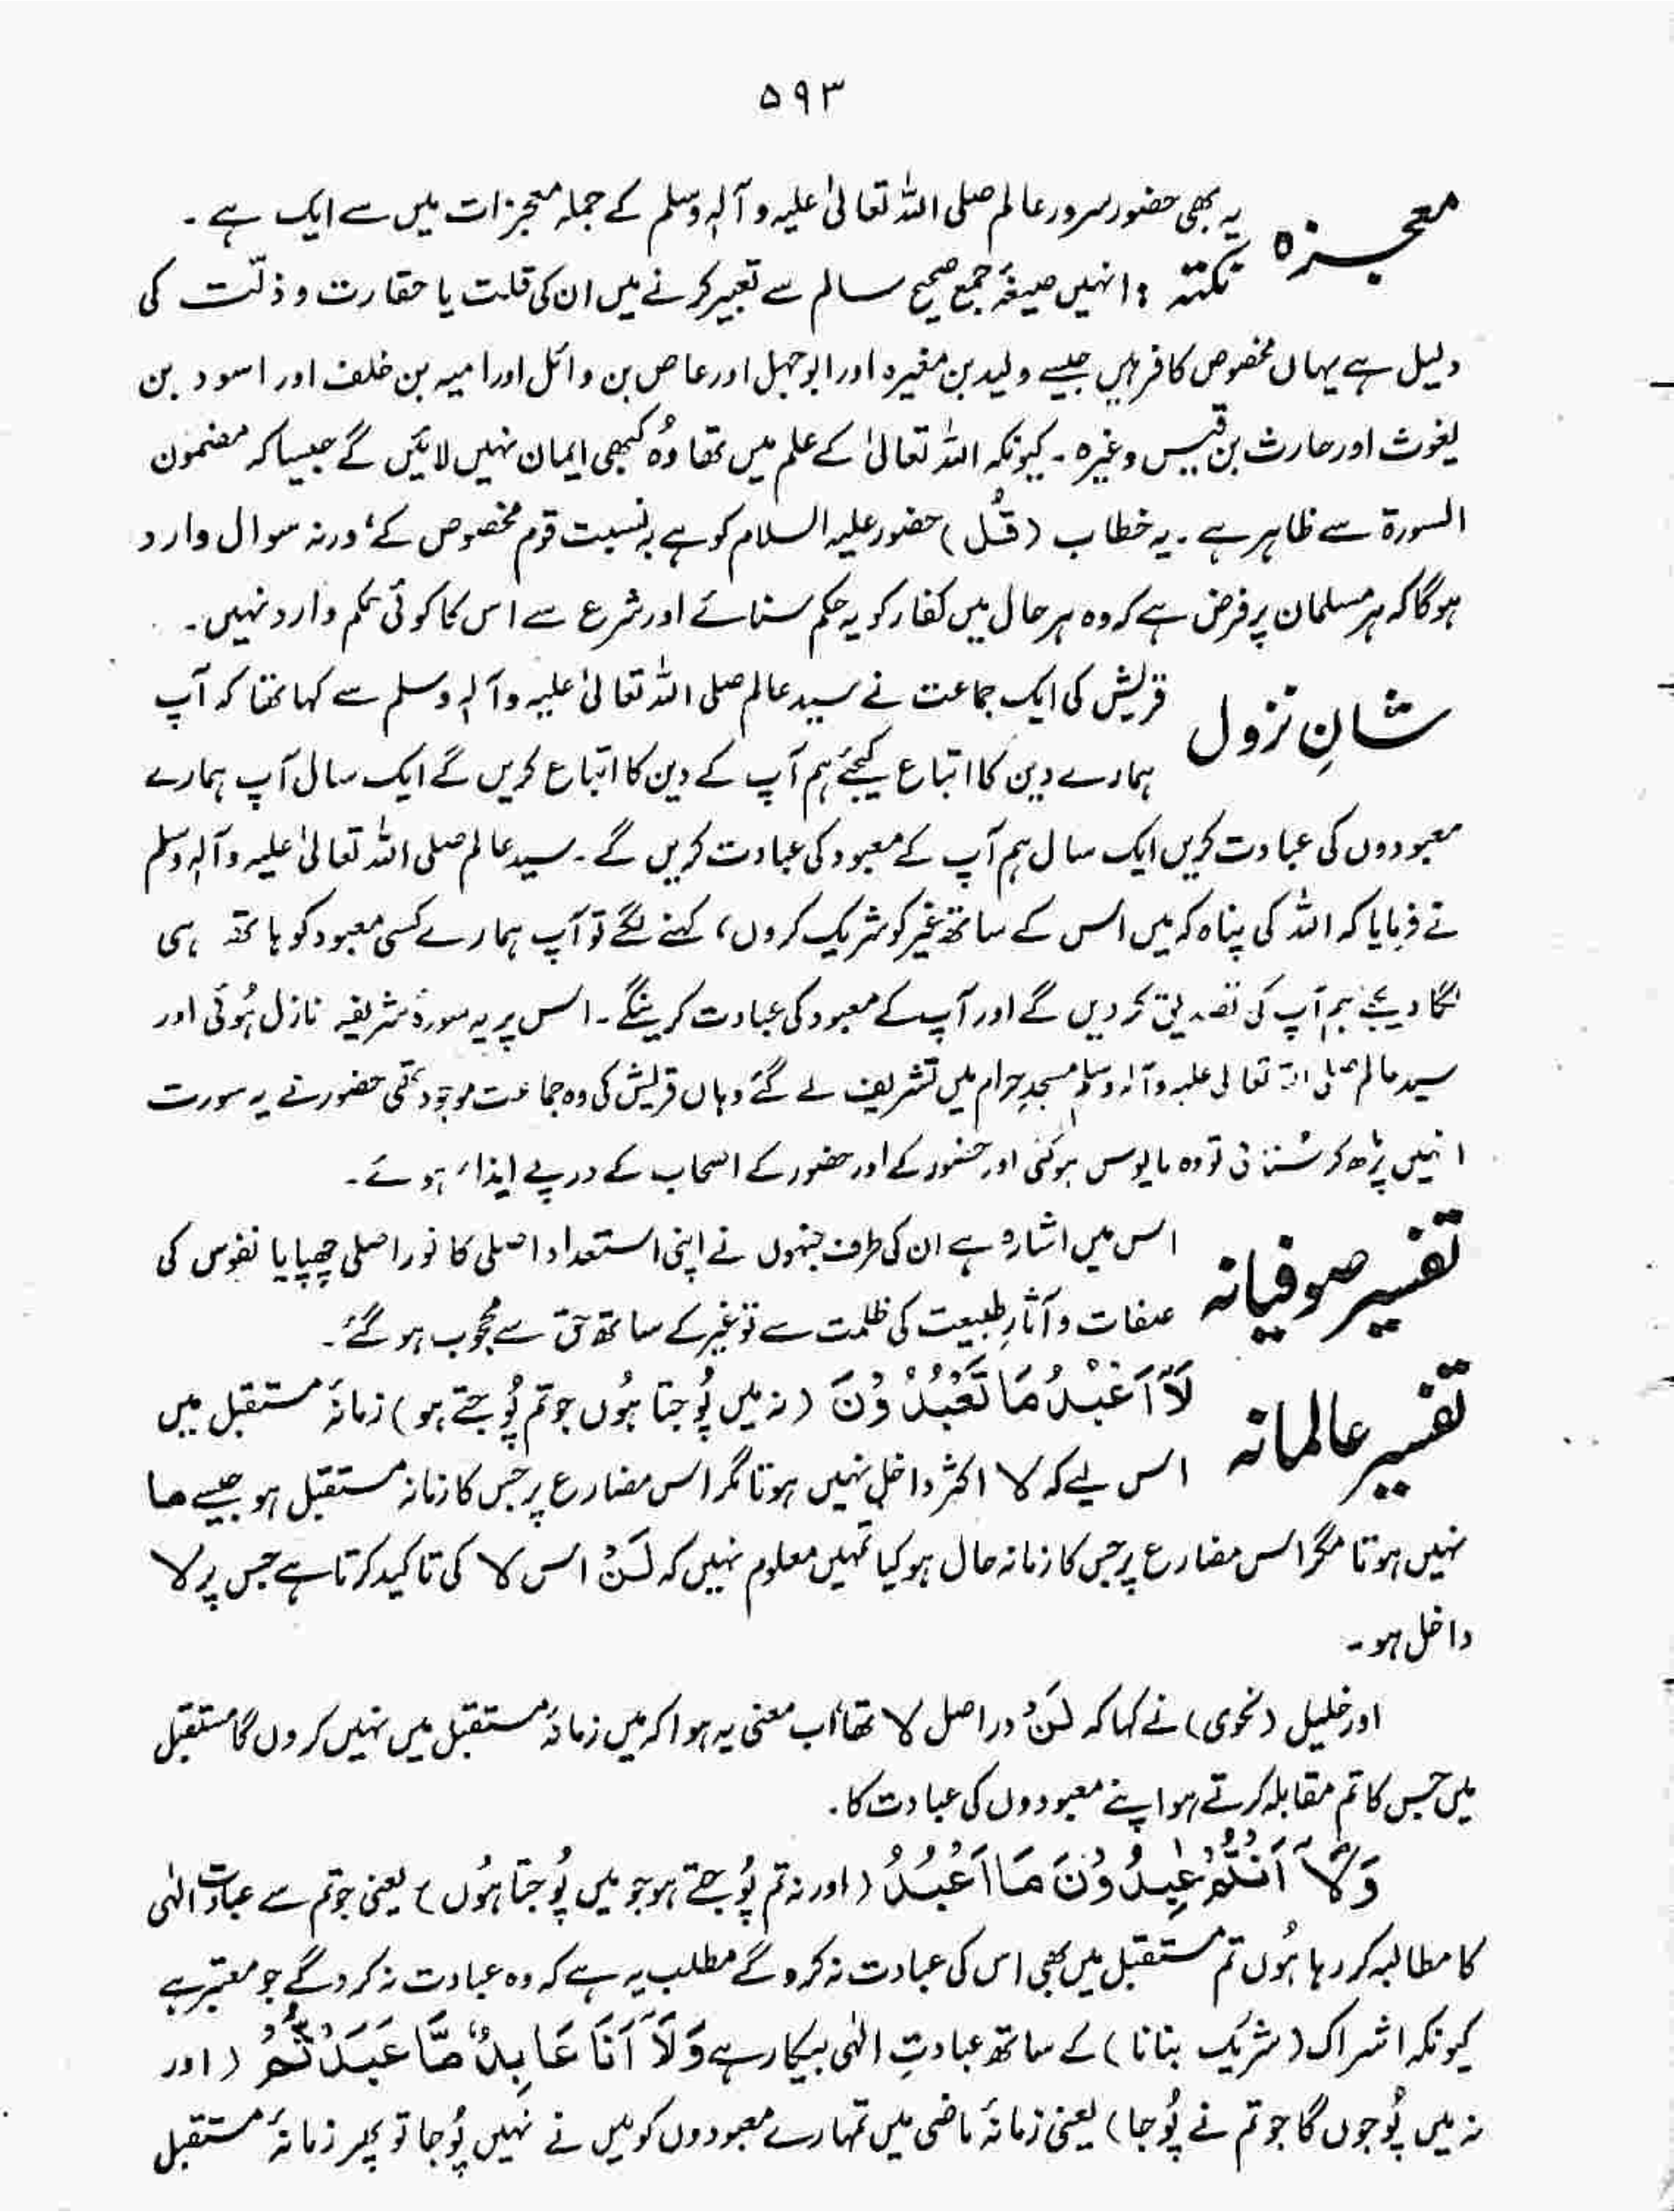 ۵۹۳
معجزہ یہ بھی حضور سرور عالم صلی اللہ تعالیٰ علیہ و آلہٖ وسلم کے جملہ معجزات میں سے ایک ہے ۔
نکتہ : انہیں صیغۂ جمع صحیح سالم سے تعبیر کرنے میں ان کی قلت یا حقارت و ذلّت کی
دلیل ہے یہاں مخصوص کافر ہیں جیسے ولید بن مغیرہ اور ابوجہل اور عاص بن وائل اور امیہ بن خلف اور اسود بن
یغوث اور حارث بن قیس وغیرہ ۔ کیونکہ اللہ تعالیٰ کے علم میں تھا وُہ کبھی ایمان نہیں لائیں گے جیسا کہ مضمون
السورۃ سے ظاہر ہے ۔ یہ خطاب (قُل) حضور علیہ السلام کو ہے بہ نسبت قوم مخصوص کے ، ورنہ سوال وارد
ہوگا کہ ہر مسلمان پر فرض ہے کہ وہ ہر حال میں کفار کو یہ حکم سنائے اور شرع سے اس کا کوئی حکم وارد نہیں ۔
شانِ نزول قریش کی ایک جماعت نے سید عالم صلی اللہ تعالیٰ علیہ و آلہٖ وسلم سے کہا تھا کہ آپ
ہمارے دین کا اتباع کیجئے ہم آپ کے دین کا اتباع کریں گے ایک سال آپ ہمارے
معبودوں کی عبادت کریں ایک سال ہم آپ کے معبود کی عبادت کریں گے ۔ سید عالم صلی اللہ تعالیٰ علیہ و آلہٖ وسلم
نے فرمایا کہ اللہ کی پناہ کہ میں اس کے ساتھ غیر کو شریک کروں ، کہنے لگے تو آپ ہمارے کسی معبود کو ہاتھ ہی
لگا دیجئے ہم آپ کی تصدیق کر دیں گے اور آپ کے معبود کی عبادت کرینگے ۔ اس پر یہ سورۂ شریفہ نازل ہُوئی اور
سید عالم صلی اللہ تعالیٰ علیہ و آلہٖ وسلم مسجدِ حرام میں تشریف لے گئے وہاں قریش کی وہ جماعت موجود تھی حضور نے یہ سورت
انہیں پڑھ کر سُنائی تو وہ مایوس ہوگئی اور حضور کے اور حضور کے اصحاب کے درپے ایذاء ہوئے ۔
تفسیر صوفیانہ اس میں اشارہ ہے ان کی طرف جنہوں نے اپنی استعداد اصلی کا نور اصلی چھپایا نفوس کی
صفات و آثارِ طبیعت کی ظلمت سے تو غیر کے ساتھ حق سے محجوب ہو گئے ۔
تفسیر عالمانہ لَآ اَعْبُدُ مَا تَعْبُدُوْنَ (نہ میں پُوجتا ہُوں جو تم پُوجتے ہو) زمانۂ مستقبل میں
اس لیے کہ لا اکثر داخل نہیں ہوتا مگر اس مضارع پر جس کا زمانہ مستقبل ہو جیسے ما
نہیں ہوتا مگر اس مضارع پر جس کا زمانہ حال ہو کیا تمہیں معلوم نہیں کہ لَنْ اس لا کی تاکید کرتا ہے جس پر لا
داخل ہو ۔
اور خلیل (نحوی) نے کہا کہ لَنْ دراصل لا تھا اب معنی یہ ہوا کہ میں زمانۂ مستقبل میں نہیں کروں گا مستقبل
میں جس کا تم مقابلہ کرتے ہو اپنے معبودوں کی عبادت کا ۔
وَلَآ اَنْتُمْ عٰبِدُوْنَ مَا اَعْبُدُ (اور نہ تم پُوجتے ہو جو میں پُوجتا ہُوں) یعنی جو تم سے عبادتِ الٰہی
کا مطالبہ کر رہا ہُوں تم مستقبل میں بھی اس کی عبادت نہ کرو گے مطلب یہ ہے کہ وہ عبادت نہ کرو گے جو معتبر ہے
کیونکہ اشراک (شریک بنانا) کے ساتھ عبادتِ الٰہی بیکار ہے وَلَآ اَنَا عَابِدٌ مَّا عَبَدْتُّمْ (اور
نہ میں پُوجوں گا جو تم نے پُوجا) یعنی زمانۂ ماضی میں تمہارے معبودوں کو میں نے نہیں پُوجا تو پھر زمانۂ مستقبل